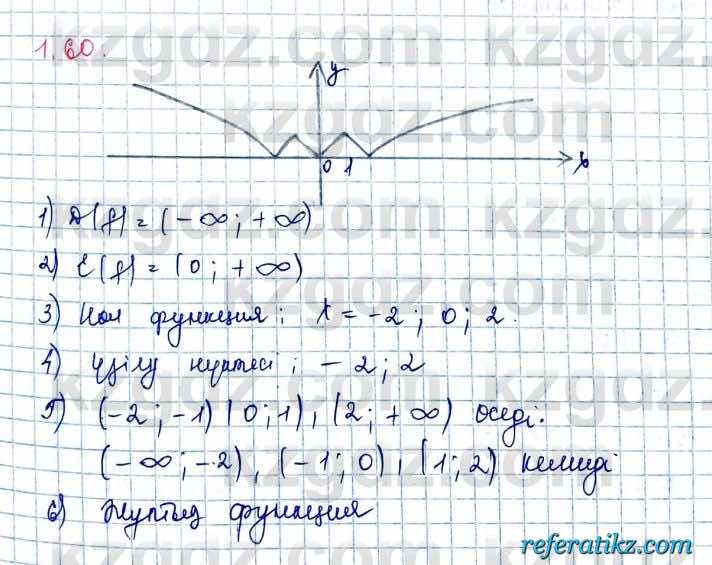 1.60.
y
0 1 x
1) D(f) = (-∞; +∞)
2) E(f) = (0; +∞)
3) Нөл функция; x = -2; 0; 2.
4) Үзілу нүктесі; -2; 2
5) (-2; -1) (0; 1), (2; +∞) өседі.
(-∞; -2), (-1; 0), (1; 2) кемиді
6) Жұптық функция
kzgdz.com
referatikz.com